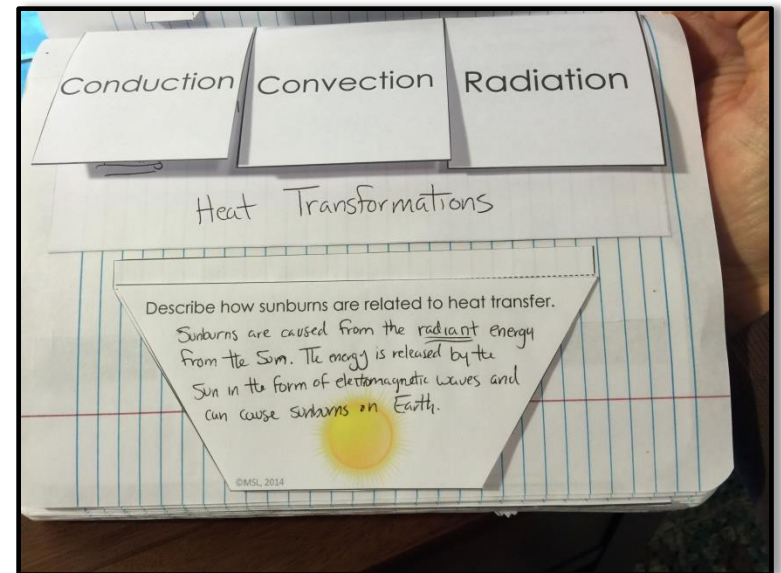 Conduction Convection Radiation
Heat Transformations
Describe how sunburns are related to heat transfer.
Sunburns are caused from the radiant energy
from the Sun. The energy is released by the
Sun in the form of eletromagnetic waves and
can cause sunburns on Earth.
©MSL, 2014